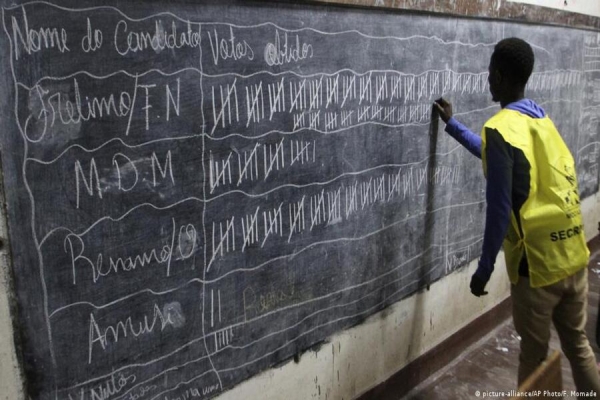 Nome do Candidato Votos obtidos
Frelimo/F.N
M.D.M
Renamo/O
Amusi
V. Nulos
SECRE
© picture-alliance/AP Photo/F. Momade